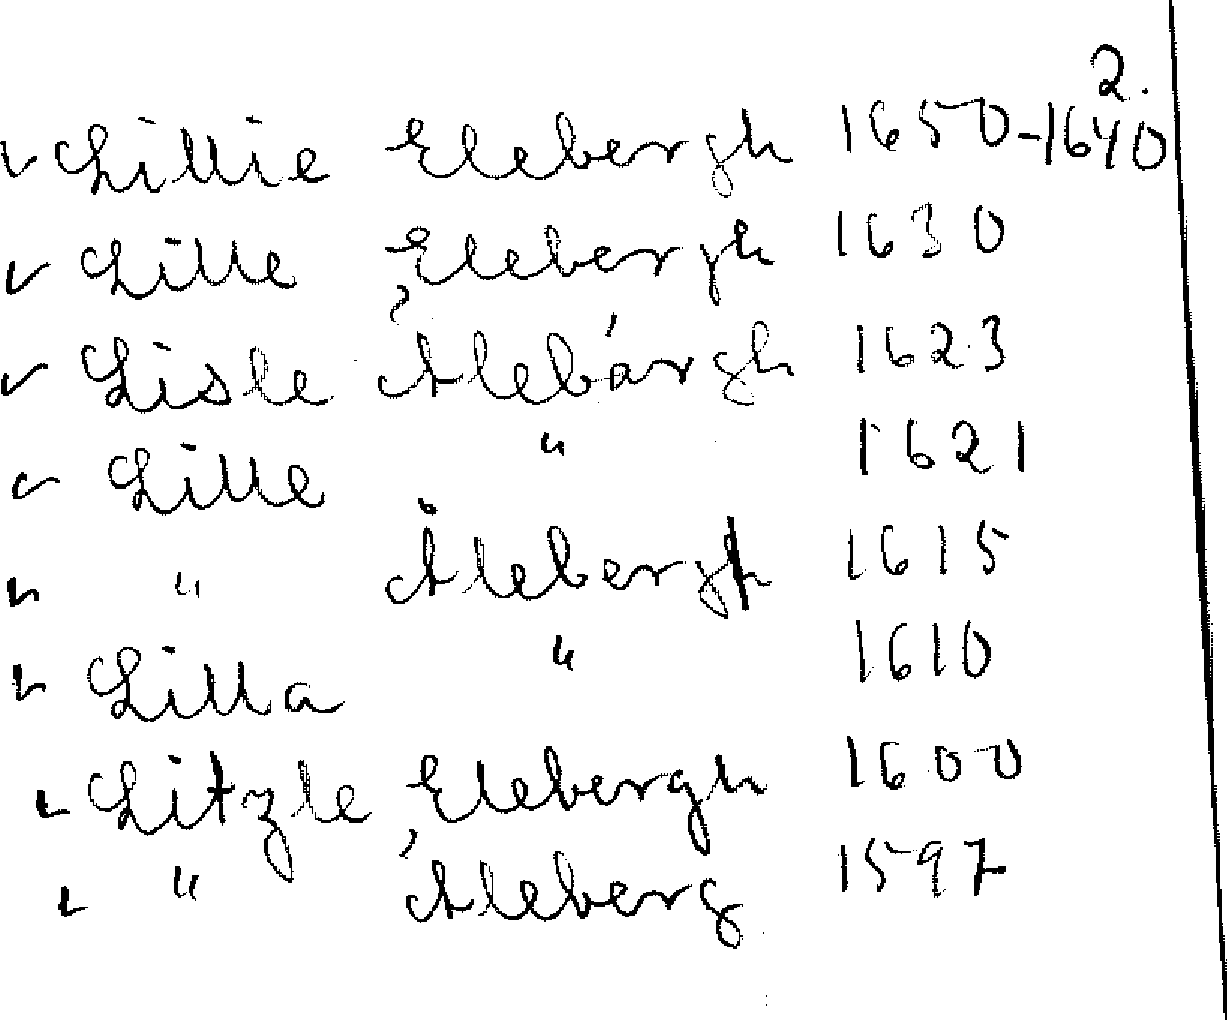 2.
✓ Lillie Elebergh 1650-1640
✓ Lille Elebergh 1630
✓ Lisle Älebärgh 1623
✓ Lille " 1621
✓ " Ålebergh 1615
✓ Lilla " 1610
✓ Litzle Elebergh 1600
✓ " Åleberg 1597